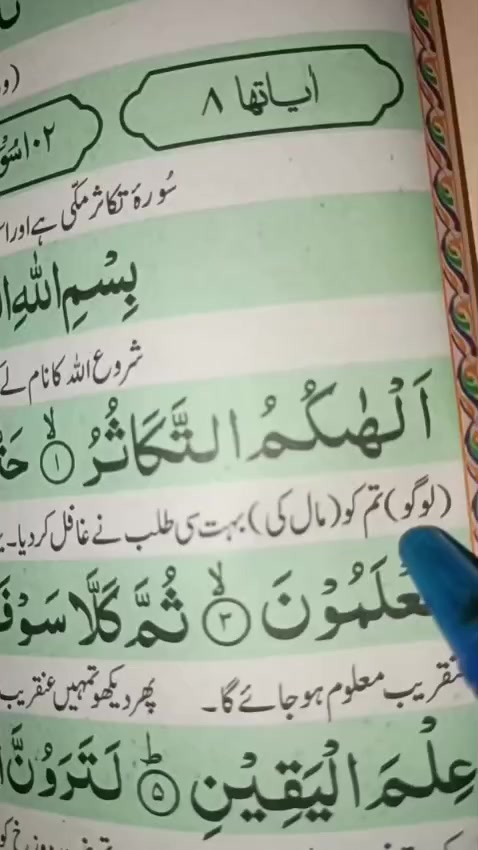 اٰیاتھا ۸
۱۰۲ سُوْ
سُورۂ تکاثر مکّی ہے اور
بِسْمِ اللّٰهِ
شروع اللہ کا نام لے
اَلْهٰىكُمُ التَّكَاثُرُ ۙ‏﴿۱﴾
(لوگو) تم کو (مال کی) بہت سی طلب نے غافل کر دیا۔
عْلَمُوْنَ ۙ‏﴿۳﴾ ثُمَّ كَلَّا سَوْفَ
عنقریب معلوم ہو جائے گا۔ پھر دیکھو تمہیں عنقریب
عِلْمَ الْيَقِيْنِ ؕ‏﴿۵﴾ لَتَرَوُنَّ